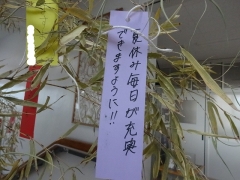 夏休み毎日が充実
できますように!!